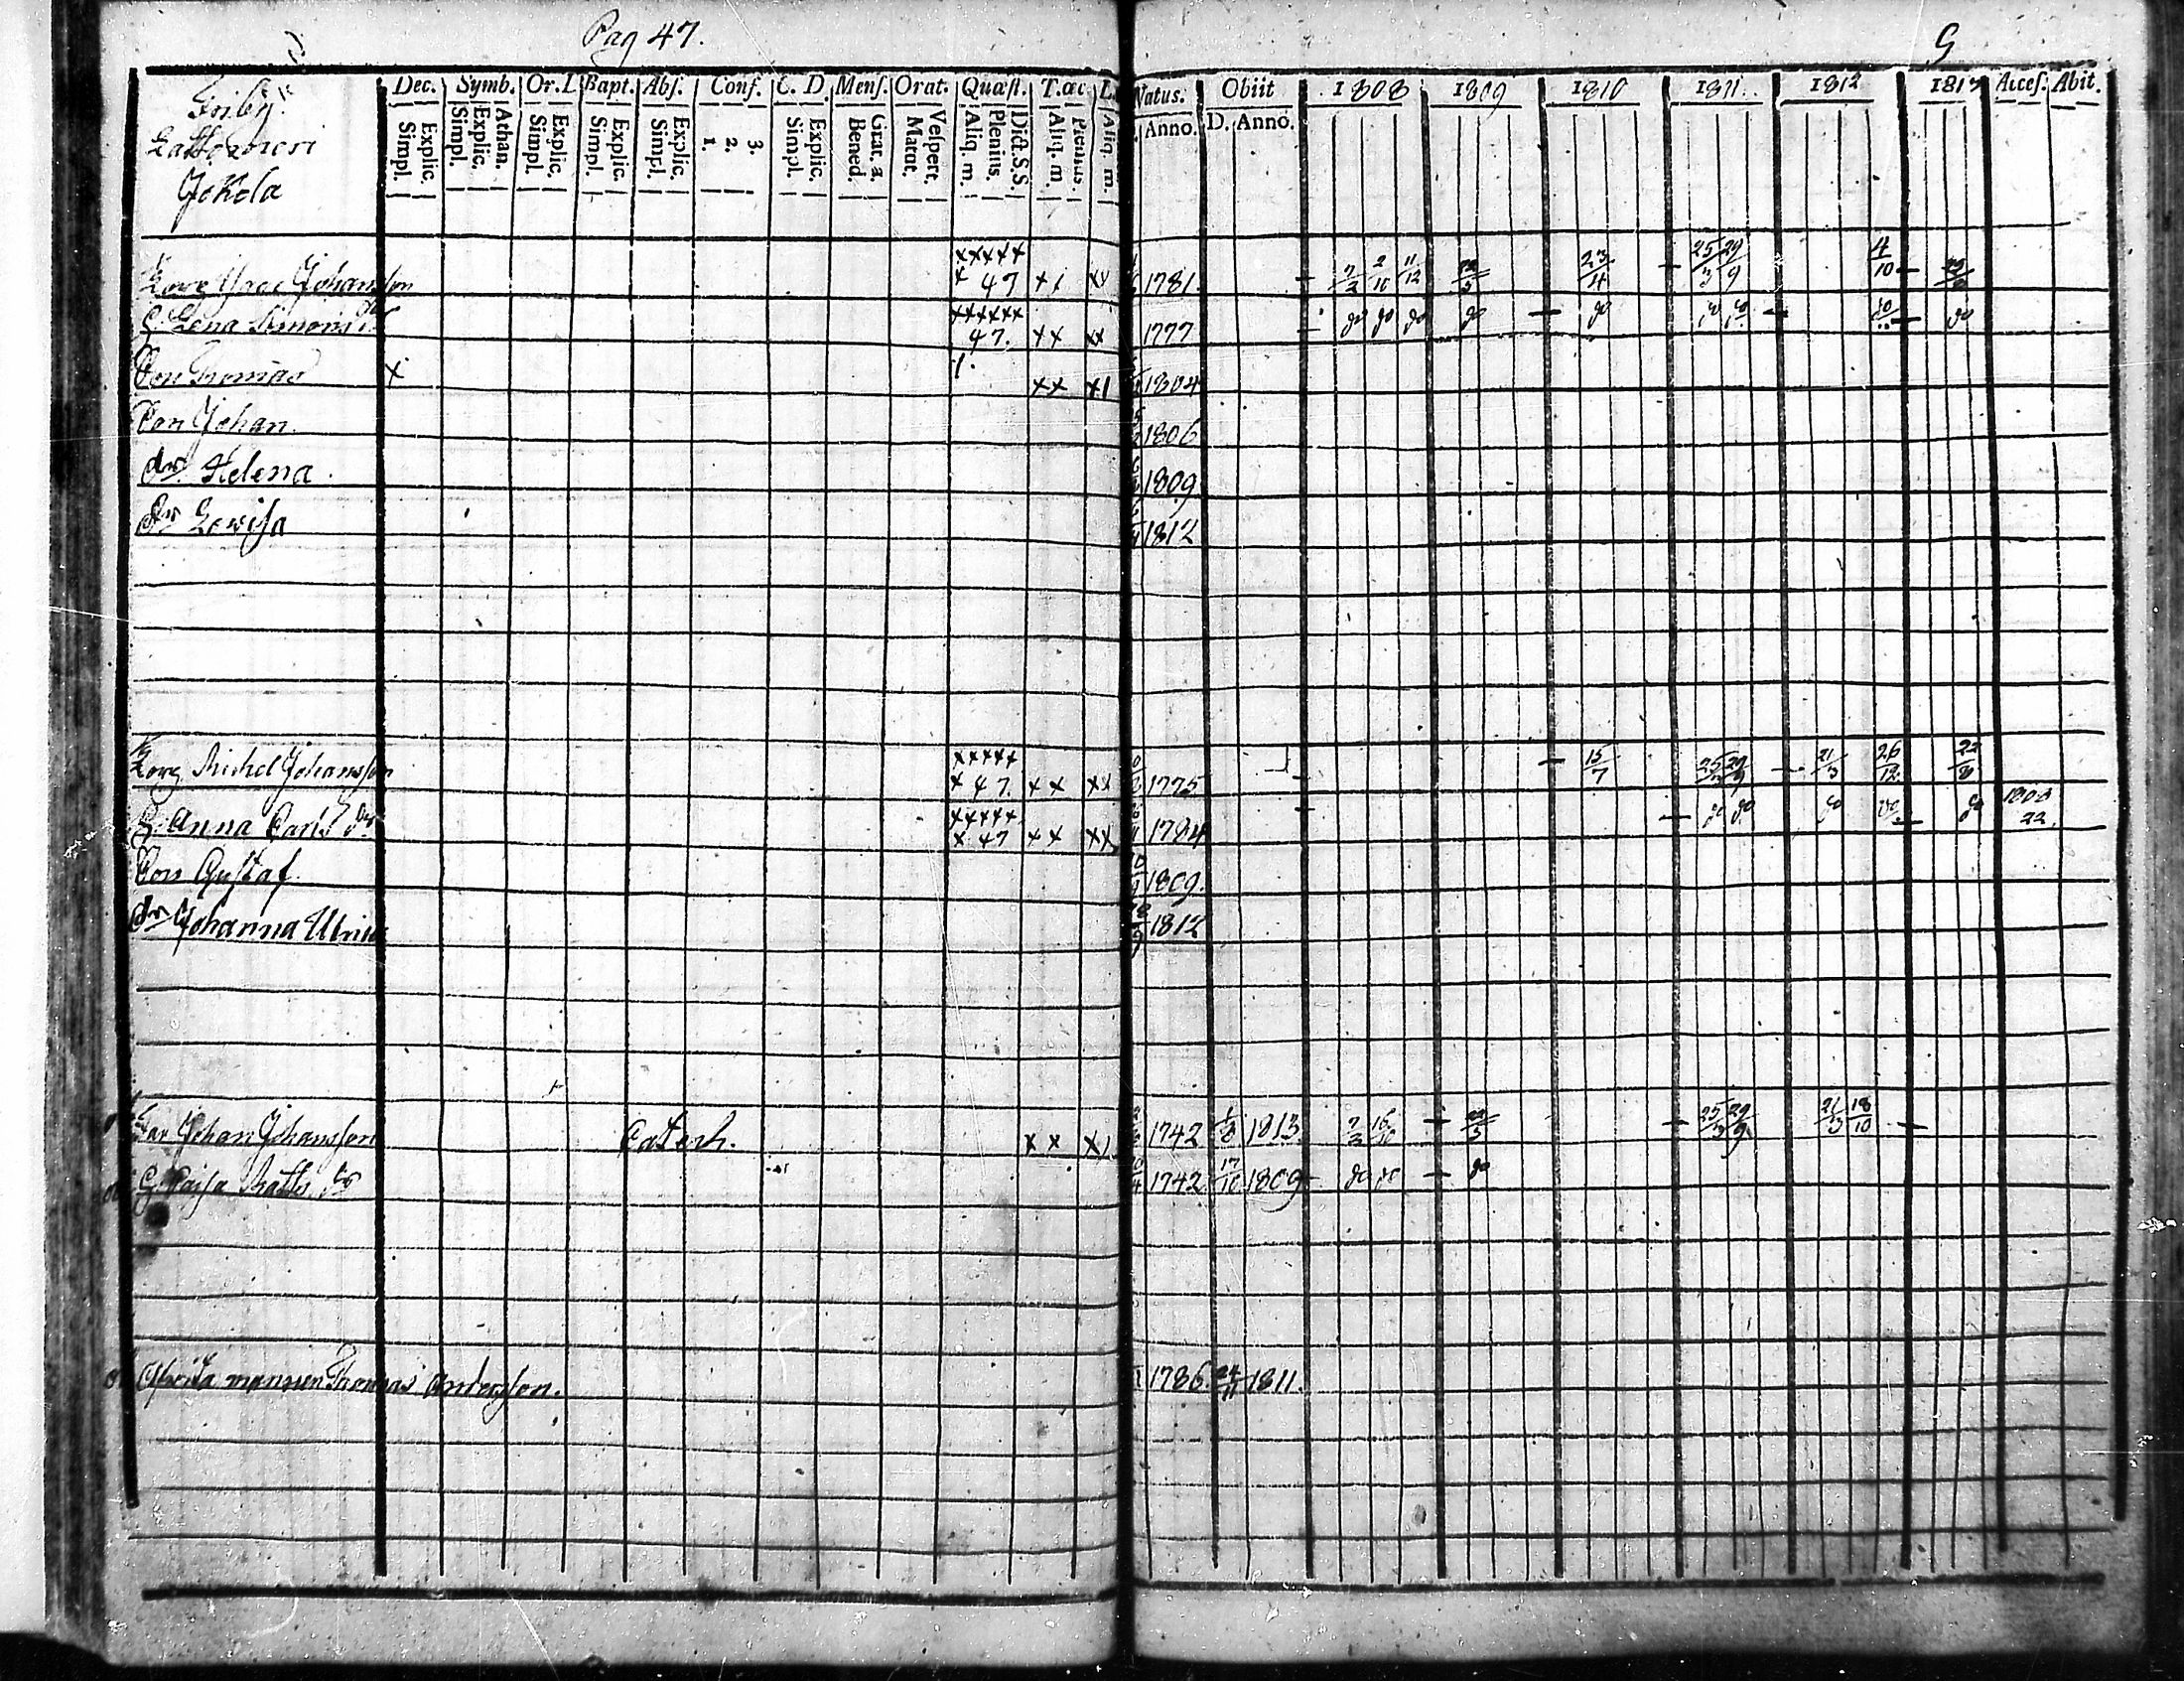 Pag 47.
9
Friby
Jokola
Dec. Symb. Or. D Bapt. Abſ. Conſ. C. D. Menſ. Orat. Quæſt. T. œc L.
Explic. Simpl. Athan. Explic. Simpl. Explic. Simpl. Explic. Simpl. Explic. Simpl. 1. 2. 3. Explic. Simpl. Grat. a. Bened. Veſpert. Matut. Dict. S.S. Plenius. Aliq. m. Plenius. Aliq. m. Aliq. m.
Natus. Obiit 1808 1809 1810 1811. 1812 1813 Acceſ. Abit.
Anno. D. Anno.
Johansson xxxxx x 47 1781. 7/2 2/10 11/12 23/4 25/3 29/9 4/10
Lena Simons dr xxxxxx 47. xx xx 1777 do do do do do do do do do
Son Thomas x xx x1 1804
Son Johan. 1806
dr Helena. 1809
dr Lovisa 1812
Michel Johansson xxxxx x 47. xx xx 1775 15/7 25/3 29/9 21/3 26/12 22/8
H. Anna Carls dr xxxxx x 47 xx xx 1784 do do do do do 1808 22.
Son Gustaf. 1809.
dr Johanna Ulrica 1812
Far Johan Johansson Catech. xx x1. 1742 1/8 1813. 7/2 16/10 25/3 29/9 21/3 18/10
H. Caisa Matts dr 1742 17/10 1809 do do do
Thomas Andersson. 1786. 24/11 1811.